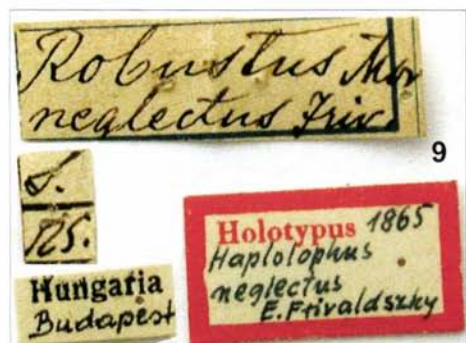 Robustus Mor
neglectus Friv.
9
S.
125.
Hungaria
Budapest
Holotypus 1865
Haplolophus
neglectus
E. Frivaldszky